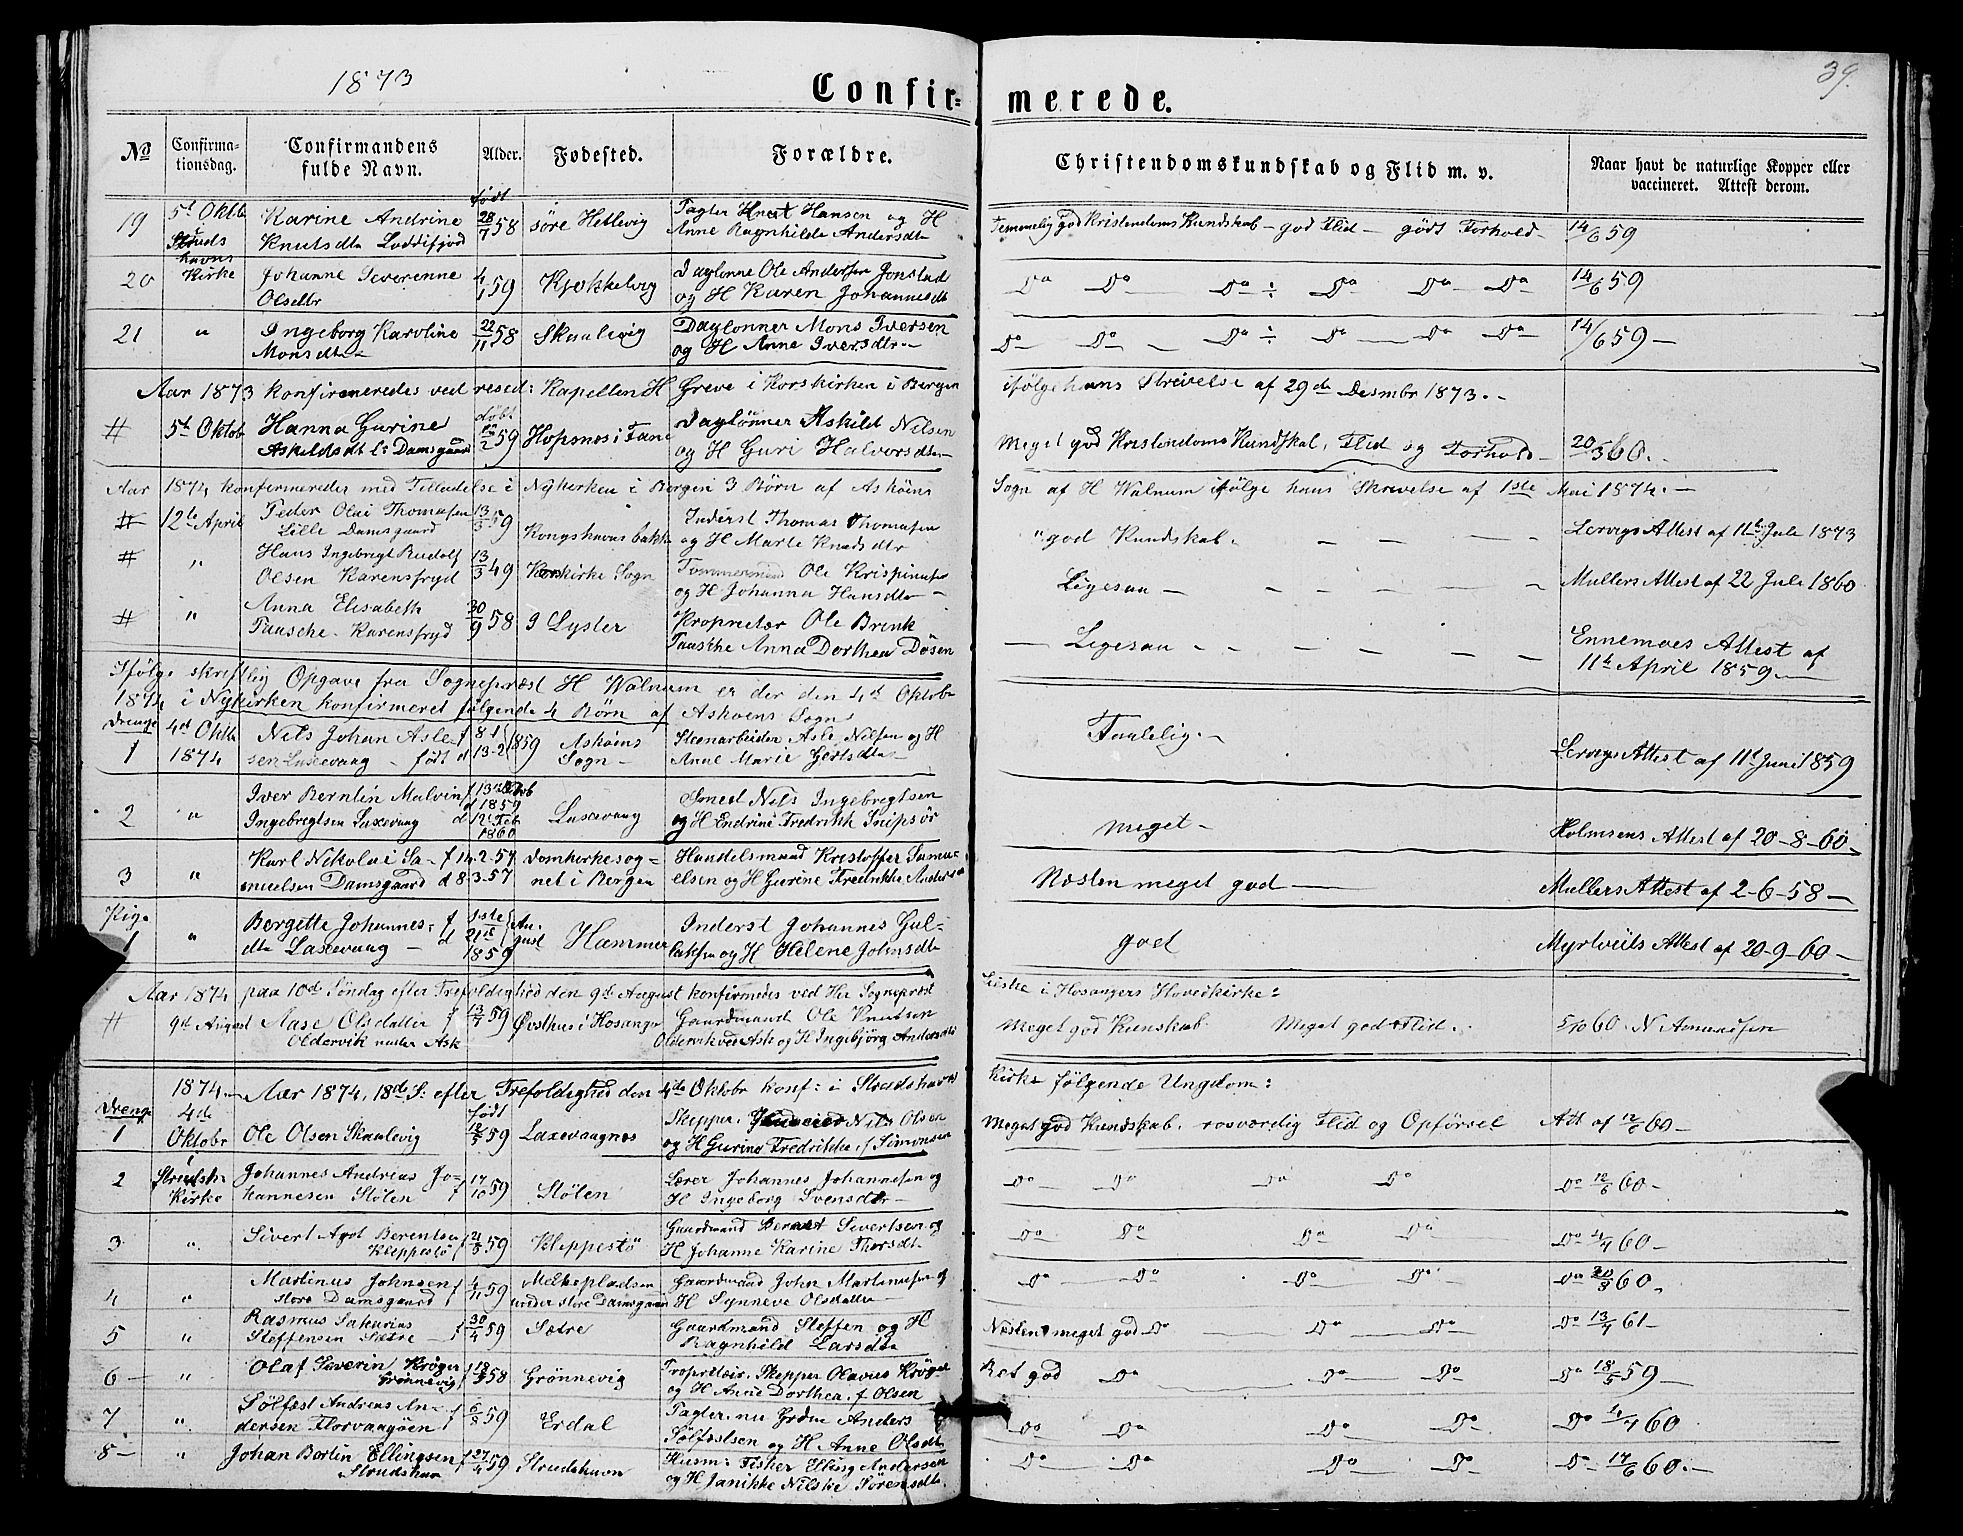 1873
Confir=
merede.
39.
No
Confirma-
tionsdag.
Confirmandens
fulde Navn.
Alder.
Fødested.
Forældre.
Christendomskundskab og Flid m. v.
Naar havt de naturlige Kopper eller
vaccineret. Attest derom.
født
19 5t Oktb Karine Andrine 28/7 58 søre Hetlevig Tagter Hansen og H Temmelig god Kristendoms Kundskab - god Flid - godt Forhold - 14/6 59
Knutsdtr Loddefjord Anne Ragnhilde Andersdtr
havns
20 Kirke Johanne Severenne 4/1 59 Kjøkkelvig Daglønne Ole Andersen Do Do Do ÷ Do Do Do 14/6 59
Olsdtr og H Karen Johannesdt
21 " Ingeborg Karoline 22/11 58 Skaalevig Daglønner Mons Iversen Do Do Do ÷ Do Do Do 14/6 59 -
Monsdtr - og H Anne Iversdtr -
Aar 1873 konfirmeredes ved resed: Kapellan H Greve i Korskirken i Bergen ifølge hans Skrivelse af 29de Desmbr 1873. -
døbt
# 5t Oktob Hanna Gurine 59 Hopsnes i Fane Daglønner Askild Nilsen Meget god Kristendoms Kundskab, Flid og Forhold - 20/3 60. -
Askildsdt l: Damsgaard og H Guri Halvorsdtr -
Aar 1874 konfirmeredes med Tilladelse i Nykirken i Bergen 3 Børn af Askøens Sogn af H Walnum ifølge hans Skrivelse af 1ste Mai 1874. -
# 12te April Peder Olai Thomassen 13/3 59 Kongshavns bakke Inderst Thomas Thomasen " god Kundskab. - - - - Lervigs Attest af 11te Jule 1873
Lille Damsgaard og H Marte Knudsdtr
# " Hans Ingebregt Rudolf 13/3 49 Korskirke Sogn Tømmermand Ole Krispinusen Ligesaa - - - - - Mullers Attest af 22 Jule 1860
Olsen Karensfryd og H Johanna Hansdtr -
# " Anna Elisabeth 30/9 58 I Lyster Proprietær Ole Brink - Ligesaa - - - - - Ennemoes Attest af
Taasche - Karensfryd Taaskhe Anna Dorthea Døsen 11te April 1859 -
Ifølge skriftlig Opgave fra Sogneprest H Walnum er der den 4de Oktobr
1874 i Nykirken konfirmeret følgende 4 Børn af Askøens Sogn
Drenge
1 4de Oktb Nils Johan Asle- f 8-1 1859 Askøens Steenarbeider Asle Nilsen og H Taalelig. - Lervigs Attest af 11te Juni 1859
1874 sen Laxevaag - født d 13-2 Sogn - Anne Marie Gertsdtr
2 " Iver Berntin Malvin f 13 1859 Laxevaag Smed Nils Ingebregtsen meget - Holmsens Attest af 20-8-60 -
Ingebregtsen Laxevaag d 12t Feb 1860 og H Endrine Fredrikk Snipsør
3 " Karl Nikolai Sa- f 14-2-57 Domkirkesog= Handelsmand Kristoffer Samu= Næsten meget god - Mullers Attest af 2-6-58 -
muelsen Damsgaard d 8-3-57 net i Bergen elsen og H Gurine Fredrikke Anders
Pige
1 " Bergitte Johannes- f 1ste Au- Hammer Inderst Johannes Gul= god Myrtveits Attest af 20-9-60 -
dtr Laxevaag - d 21de gust 1859 laksen og H Helene Johnsdtr
Aar 1874 paa 10de Søndag efter Trefoldighed den 9de August konfirmedes ved Hr Sogneprest Liske i Hosangers Hovedkirke:
# 9de August Aase Olsdatter f 13/7 59 Østhus i Hosanger Gaardmand Ole Knutsen Meget god Kunskab Meget god Flid. 5/10 60. N Amundsen
Oldervik under Ask Oldervik ved Ask og H Ingebjørg Andersdtr
1874. - Aar 1874, 18de S: efter Trefoldighed den 4de Oktobr konf: i Strudshavns Kirke følgende Ungdom:
Drenge 4de født
1 Oktobr Ole Olsen Skaalevig 12/5 59 Laxevaagnes Skipper Nils Olsen Meget god Kundskab. rosværdig Flid og Opførsel Att af 12/6 60 -
og H Gurine Fredrikke f Simonsen
2 Strudsh: Johannes Andreas Jo- f 17/10 59 Stølen Lærer Johannes Johannesen og Do Do Do Do Do 12/6 60 -
Kirke hannesen Stølen H Ingeborg Svensdtr -
3 " Sivert Agot Berentsen f 21/3 59 Kleppestø Gaardmand Bernt Sivertsen og Do Do Do Do Do 4/4 60 -
Kleppestø H Johanne Karine Thorsdt
4 " Martinus Johnsen f 4/11 59 Melkepladsen Gaardmand John Martinusen og Do Do Do Do Do 20/3 60 -
store Damsgaard under store Damsgaard H Synneve Olsdatter -
5 " Rasmus Sakarias f 30/4 59 Sætre Gaardmand Steffen og H Næsten meget god Do Do Do Do 13/4 61 -
Steffensen Sætre - Ragnhild Larsdtr
6 - " Olaf Severin Krøger f 18/3 58 Grønnevig Proprietær, Skipper Olavus Krøger Ret god Do Do Do Do 18/5 59 -
Grønnevig og H Anne Dorthea, f Olsen
7 " Sølfest Andreas An- f 6/8 59 Erdal Tagter. nu Grdm Anders Do Do Do Do Do 4/4 60
dersen Florvaagøen Sølfestsen og H Anne Olsdtr
8 - " Johan Bertin Ellingsen f 27/4 59 Strudshavn Husm: Fisker Elling Andersen Do Do Do Do Do 14/6 60. -
Strudshavn og H Janikke Nilske Sørensdtr.